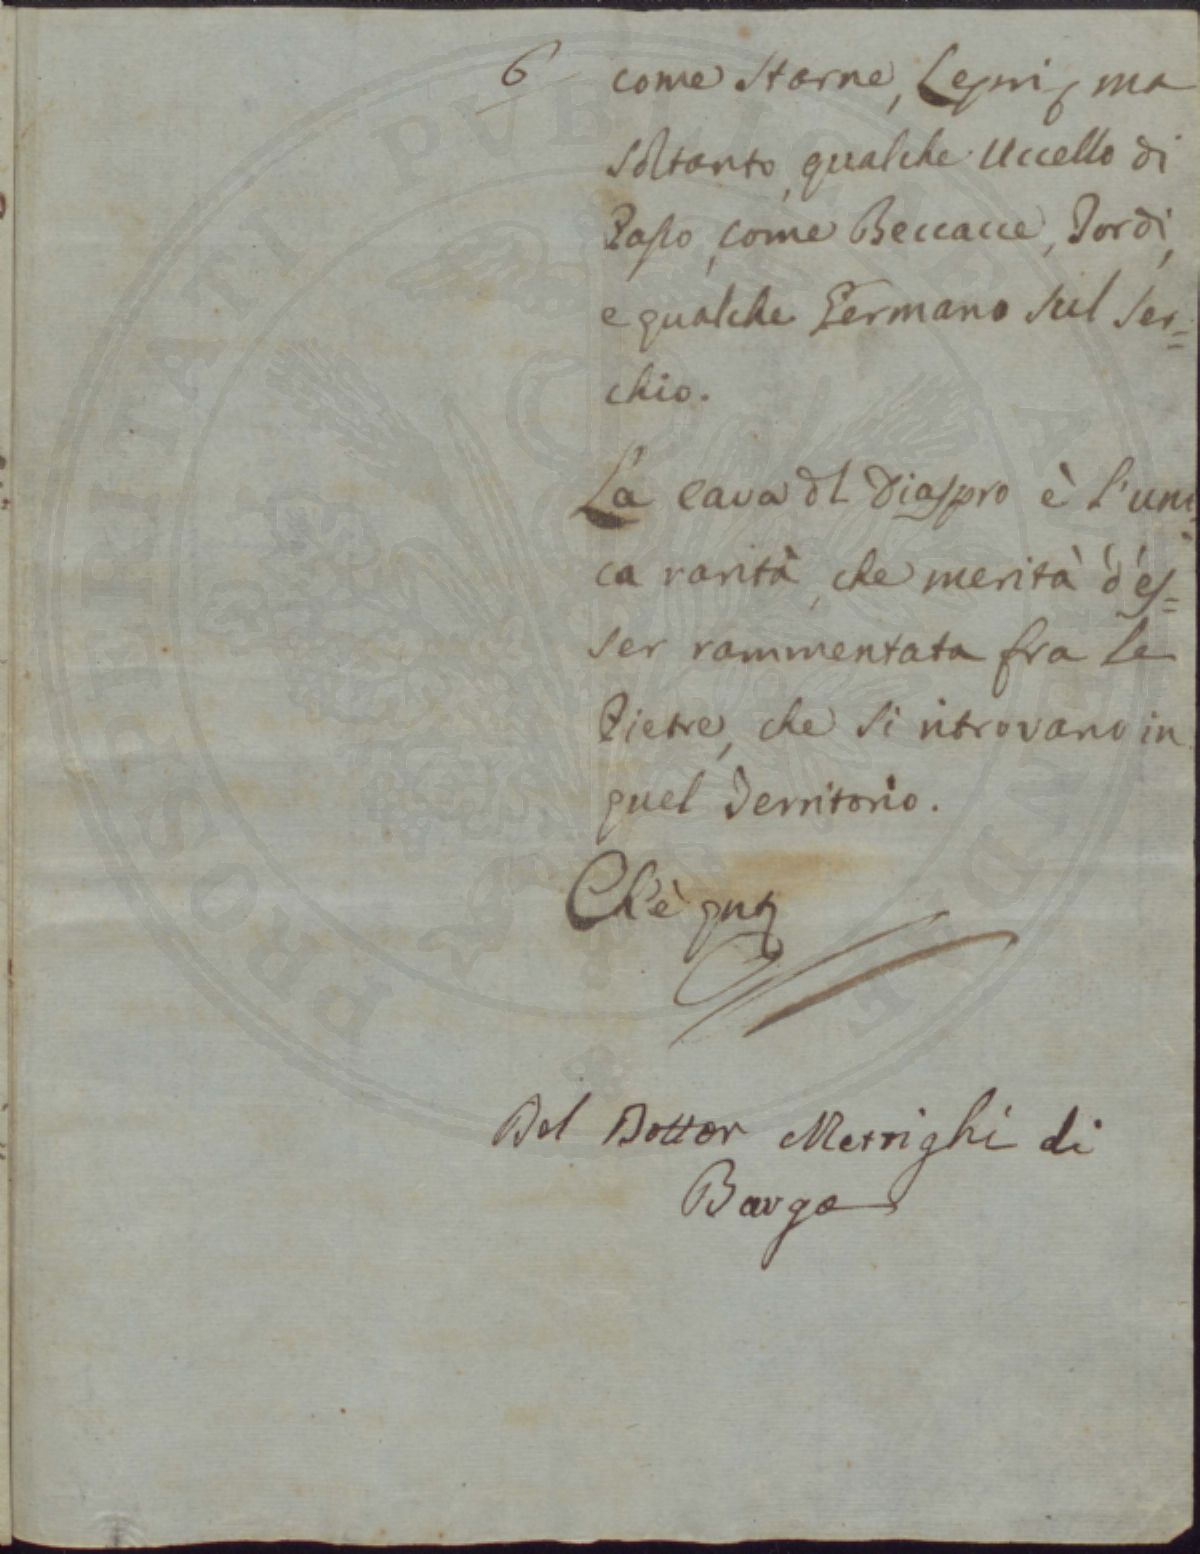 6 come starne, Lepri, ma
soltanto qualche Uccello di
Passo, come Beccacce, Tordi,
e qualche Germano sul Ser=
chio.
La cava dl Diaspro è l'uni
ca rarità, che merità d'es=
ser rammentata fra le
Pietre, che si ritrovano in
quel Territorio.
Ch'è qnt
Del Dottor di
Barga
PROSPERITATI PVBLICAE AVGENDAE